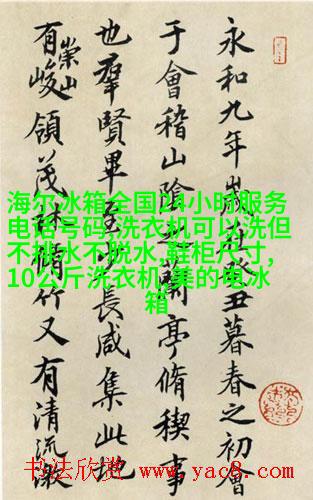 永和九年歲在癸丑暮春之初會
于會稽山陰之蘭亭脩稧事
也羣賢畢至少長咸集此地
有崇山峻領茂林脩竹又有清流激
海尔冰箱全国24小时服务
电话号码,洗衣机可以洗但
不排水不脱水,鞋柜尺寸,
10公斤洗衣机,美的电冰
箱
书法欣赏 www.yac8.com